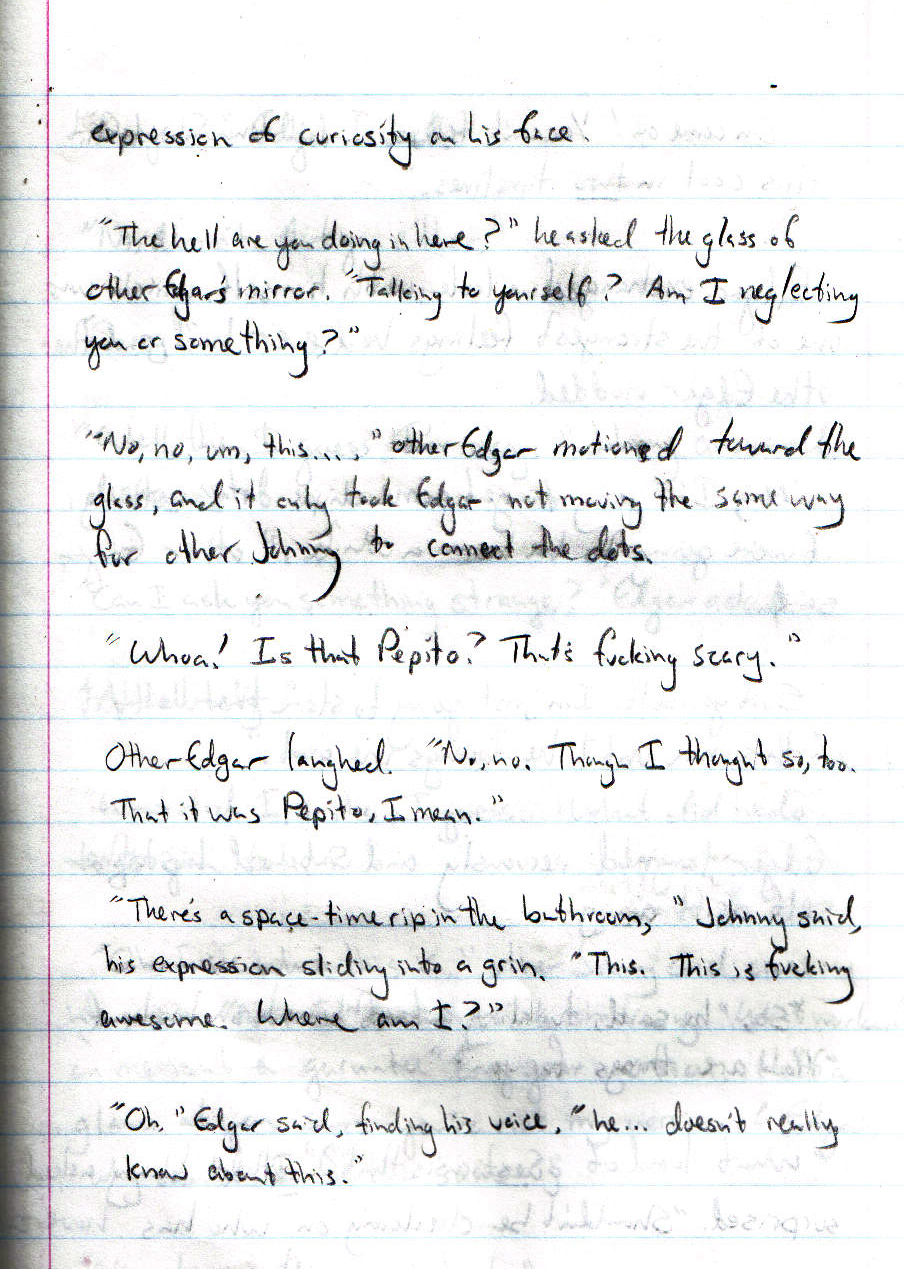 expression of curiosity on his face.
"The hell are you doing in here?" he asked the glass of
other Edgar's mirror. "Talking to yourself? Am I neglecting
you or something?"
"No, no, um, this...," other Edgar motioned toward the
glass, and it only took Edgar not moving the same way
for other Johnny to connect the dots.
"Whoa! Is that Pepito? That's fucking scary."
Other Edgar laughed. "No, no. Though I thought so, too.
That it was Pepito, I mean."
"There's a space-time rip in the bathroom," Johnny said,
his expression sliding into a grin. "This. This is fucking
awesome. Where am I?"
"Oh," Edgar said, finding his voice, "he... doesn't really
know about this."